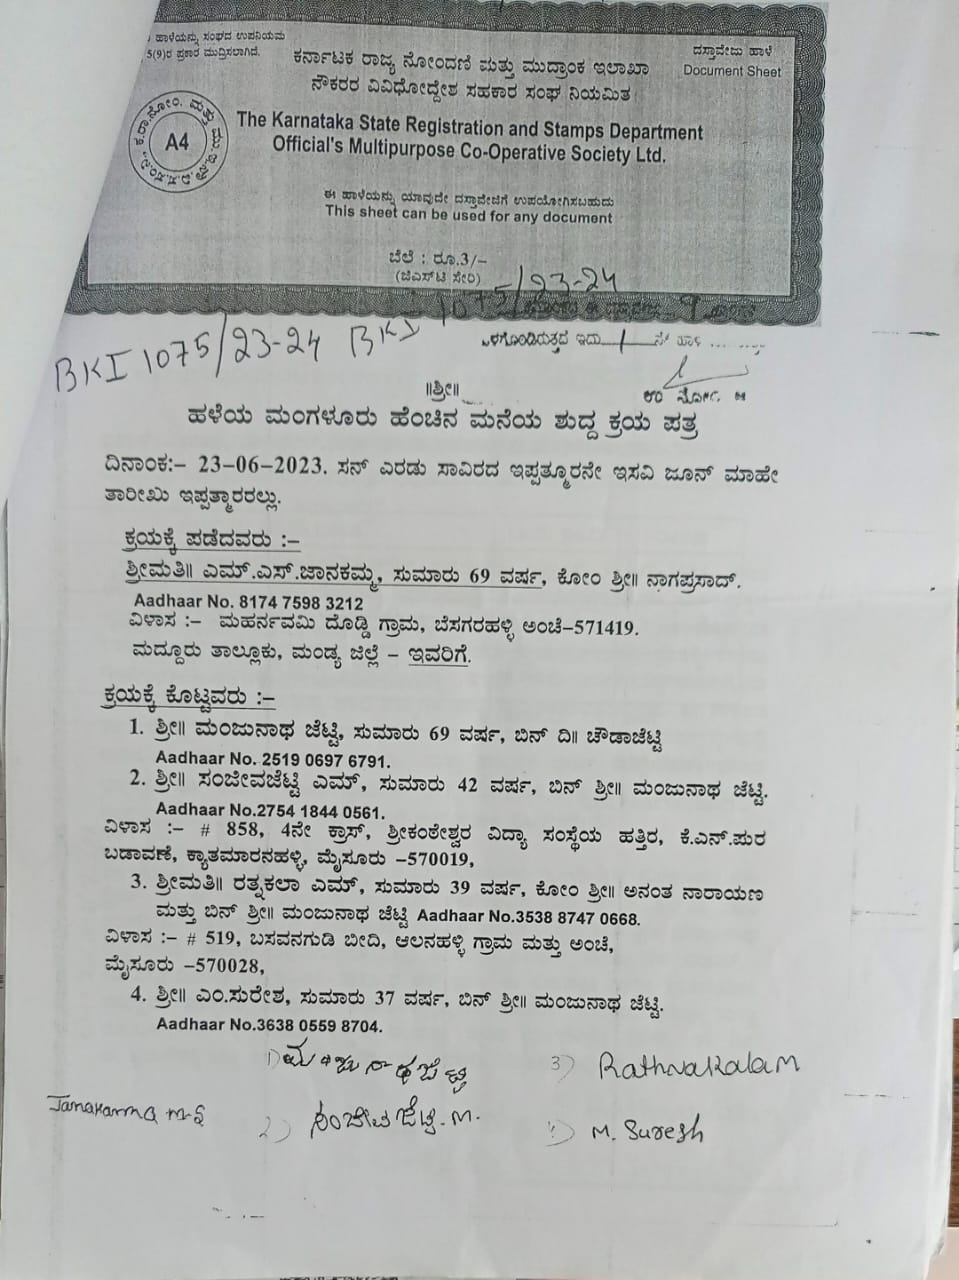 ಹಾಳೆಯನ್ನು ಸಂಘದ ಉಪನಿಯಮ
5(9)ರ ಪ್ರಕಾರ ಮುದ್ರಿಸಲಾಗಿದೆ.
ದಸ್ತಾವೇಜು ಹಾಳೆ
Document Sheet
ಕರ್ನಾಟಕ ರಾಜ್ಯ ನೋಂದಣಿ ಮತ್ತು ಮುದ್ರಾಂಕ ಇಲಾಖಾ
ನೌಕರರ ವಿವಿಧೋದ್ದೇಶ ಸಹಕಾರ ಸಂಘ ನಿಯಮಿತ
A4
The Karnataka State Registration and Stamps Department
Official's Multipurpose Co-Operative Society Ltd.
ಈ ಹಾಳೆಯನ್ನು ಯಾವುದೇ ದಸ್ತಾವೇಜಿಗೆ ಉಪಯೋಗಿಸಬಹುದು
This sheet can be used for any document
ಬೆಲೆ : ರೂ.3/–
(ಜಿಎಸ್‌ಟಿ ಸೇರಿ)
1075/23-24
BKI 1075/23-24 BKI
ಒಳಗೊಂಡಿರುತ್ತದೆ ಇದು 1 ನೇ ಹಾಳೆ
॥ಶ್ರೀ॥
ಹಳೆಯ ಮಂಗಳೂರು ಹೆಂಚಿನ ಮನೆಯ ಶುದ್ದ ಕ್ರಯ ಪತ್ರ
ದಿನಾಂಕ:– 23–06–2023. ಸನ್ ಎರಡು ಸಾವಿರದ ಇಪ್ಪತ್ಮೂರನೇ ಇಸವಿ ಜೂನ್ ಮಾಹೇ
ತಾರೀಖು ಇಪ್ಪತ್ಮಾರರಲ್ಲು.
ಕ್ರಯಕ್ಕೆ ಪಡೆದವರು :–
ಶ್ರೀಮತಿ॥ ಎಮ್.ಎಸ್.ಜಾನಕಮ್ಮ, ಸುಮಾರು 69 ವರ್ಷ, ಕೋಂ ಶ್ರೀ॥ ನಾಗಪ್ರಸಾದ್.
Aadhaar No. 8174 7598 3212
ವಿಳಾಸ :– ಮಹರ್ನವಮಿ ದೊಡ್ಡಿ ಗ್ರಾಮ, ಬೆಸಗರಹಳ್ಳಿ ಅಂಚೆ–571419.
ಮದ್ದೂರು ತಾಲ್ಲೂಕು, ಮಂಡ್ಯ ಜಿಲ್ಲೆ – ಇವರಿಗೆ.
ಕ್ರಯಕ್ಕೆ ಕೊಟ್ಟವರು :–
1. ಶ್ರೀ॥ ಮಂಜುನಾಥ ಜೆಟ್ಟಿ, ಸುಮಾರು 69 ವರ್ಷ, ಬಿನ್ ದಿ॥ ಚೌಡಾಜೆಟ್ಟಿ
Aadhaar No. 2519 0697 6791.
2. ಶ್ರೀ॥ ಸಂಜೀವಜೆಟ್ಟಿ ಎಮ್, ಸುಮಾರು 42 ವರ್ಷ, ಬಿನ್ ಶ್ರೀ॥ ಮಂಜುನಾಥ ಜೆಟ್ಟಿ.
Aadhaar No.2754 1844 0561.
ವಿಳಾಸ :– # 858, 4ನೇ ಕ್ರಾಸ್, ಶ್ರೀಕಂಠೇಶ್ವರ ವಿದ್ಯಾ ಸಂಸ್ಥೆಯ ಹತ್ತಿರ, ಕೆ.ಎನ್.ಪುರ
ಬಡಾವಣೆ, ಕ್ಯಾತಮಾರನಹಳ್ಳಿ, ಮೈಸೂರು –570019,
3. ಶ್ರೀಮತಿ॥ ರತ್ನಕಲಾ ಎಮ್, ಸುಮಾರು 39 ವರ್ಷ, ಕೋಂ ಶ್ರೀ॥ ಅನಂತ ನಾರಾಯಣ
ಮತ್ತು ಬಿನ್ ಶ್ರೀ॥ ಮಂಜುನಾಥ ಜೆಟ್ಟಿ Aadhaar No.3538 8747 0668.
ವಿಳಾಸ :– # 519, ಬಸವನಗುಡಿ ಬೀದಿ, ಆಲನಹಳ್ಳಿ ಗ್ರಾಮ ಮತ್ತು ಅಂಚೆ,
ಮೈಸೂರು –570028,
4. ಶ್ರೀ॥ ಎಂ.ಸುರೇಶ, ಸುಮಾರು 37 ವರ್ಷ, ಬಿನ್ ಶ್ರೀ॥ ಮಂಜುನಾಥ ಜೆಟ್ಟಿ.
Aadhaar No.3638 0559 8704.
1) ಮಂಜುನಾಥಜೆಟ್ಟಿ
3) RathnakalaM
Janakamma M.S
2) ಸಂಜೀವಜೆಟ್ಟಿ.M.
4) M. Suresh